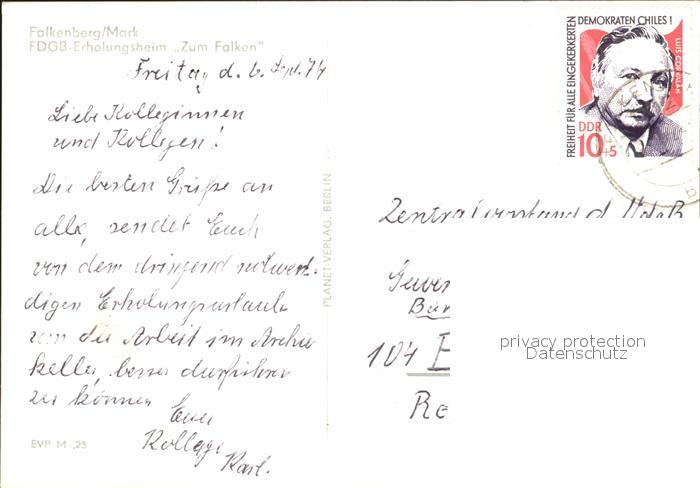 Falkenberg/Mark
FDGB-Erholungsheim „Zum Falken"
Freitag d. 6. Sept. 74
Liebe Kolleginnen
und Kollegen!
Die besten Grüße an
alle, sendet Euch
von dem dringend notwen-
digen Erholungsurlaub
um die Arbeit im Archiv
keller, besser durführen
zu können
Euer
Kollege
Karl.
EVP M -,25
PLANET-VERLAG, BERLIN
FREIHEIT FÜR ALLE EINGEKERKERTEN
DEMOKRATEN CHILES!
LUIS CORVALAN
DDR
10+5
Zentralvorstand d.
Gewer
104
privacy protection
Datenschutz